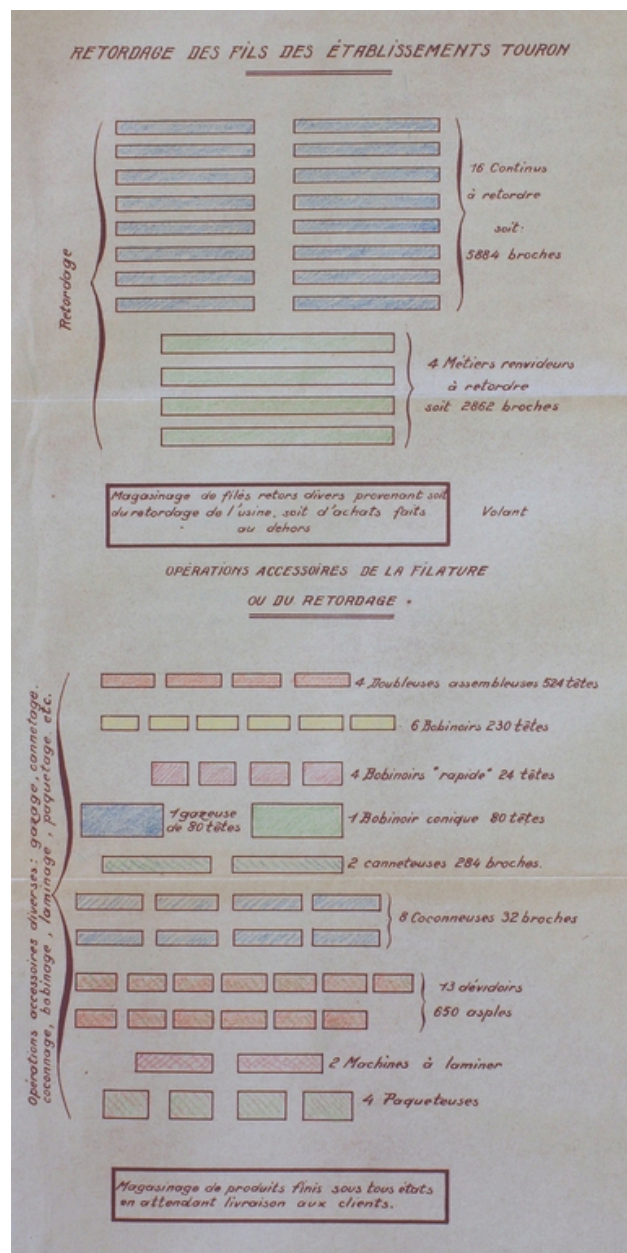 RETORDAGE DES FILS DES ÉTABLISSEMENTS TOURON
Retordage
16 Continus
à retordre
soit:
5884 broches
4 Métiers renvideurs
à retordre
soit 2862 broches
Magasinage de filés retors divers provenant soit
du retordage de l'usine, soit d'achats faits
au dehors
Volant
OPÉRATIONS ACCESSOIRES DE LA FILATURE
OU DU RETORDAGE
Opérations accessoires diverses: gazage, cannetage.
coconnage, bobinage, laminage, paquetage. etc.
4 Doubleuses assembleuses 524 têtes
6 Bobinoirs 230 têtes
4 Bobinoirs "rapide" 24 têtes
1 gazeuse
de 80 têtes
1 Bobinoir conique 80 têtes
2 canneteuses 284 broches.
8 Coconneuses 32 broches
13 dévidoirs
650 asples
2 Machines à laminer
4 Paqueteuses
Magasinage de produits finis sous tous états
en attendant livraison aux clients.